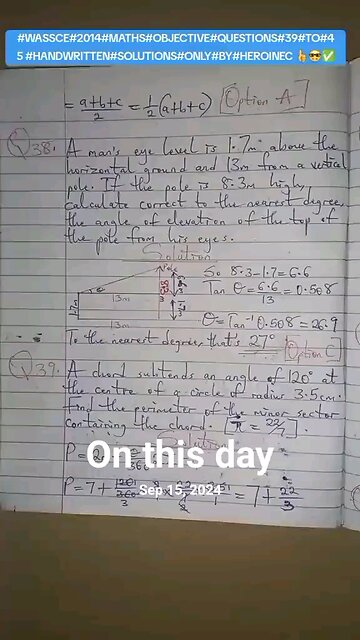 #WASSCE#2014#MATHS#OBJECTIVE#QUESTIONS#39#TO#4
5 #HANDWRITTEN#SOLUTIONS#ONLY#BY#HEROINEC 🤞😎✅
= a+b+c/2 = 1/2 (a+b+c) [Option A]
Q38. A man's eye level is 1.7m above the
horizontal ground and 13m from a vertical
pole. If the pole is 8.3m high,
calculate correct to the nearest degree,
the angle of elevation of the top of
the pole from his eyes.
Solution
So 8.3-1.7=6.6
Tan θ = 6.6/13 = 0.508
13m
θ=Tan⁻¹0.508=26.9
13m
To the nearest degree, that's 27° [Option C]
Q39. A chord subtends an angle of 120° at
the centre of a circle of radius 3.5cm.
find the perimeter of the minor sector
containing the chord. [π = 22/7]
P = 2
On this day
Sep 15, 2024
P = 7 + = 7 + 22/3